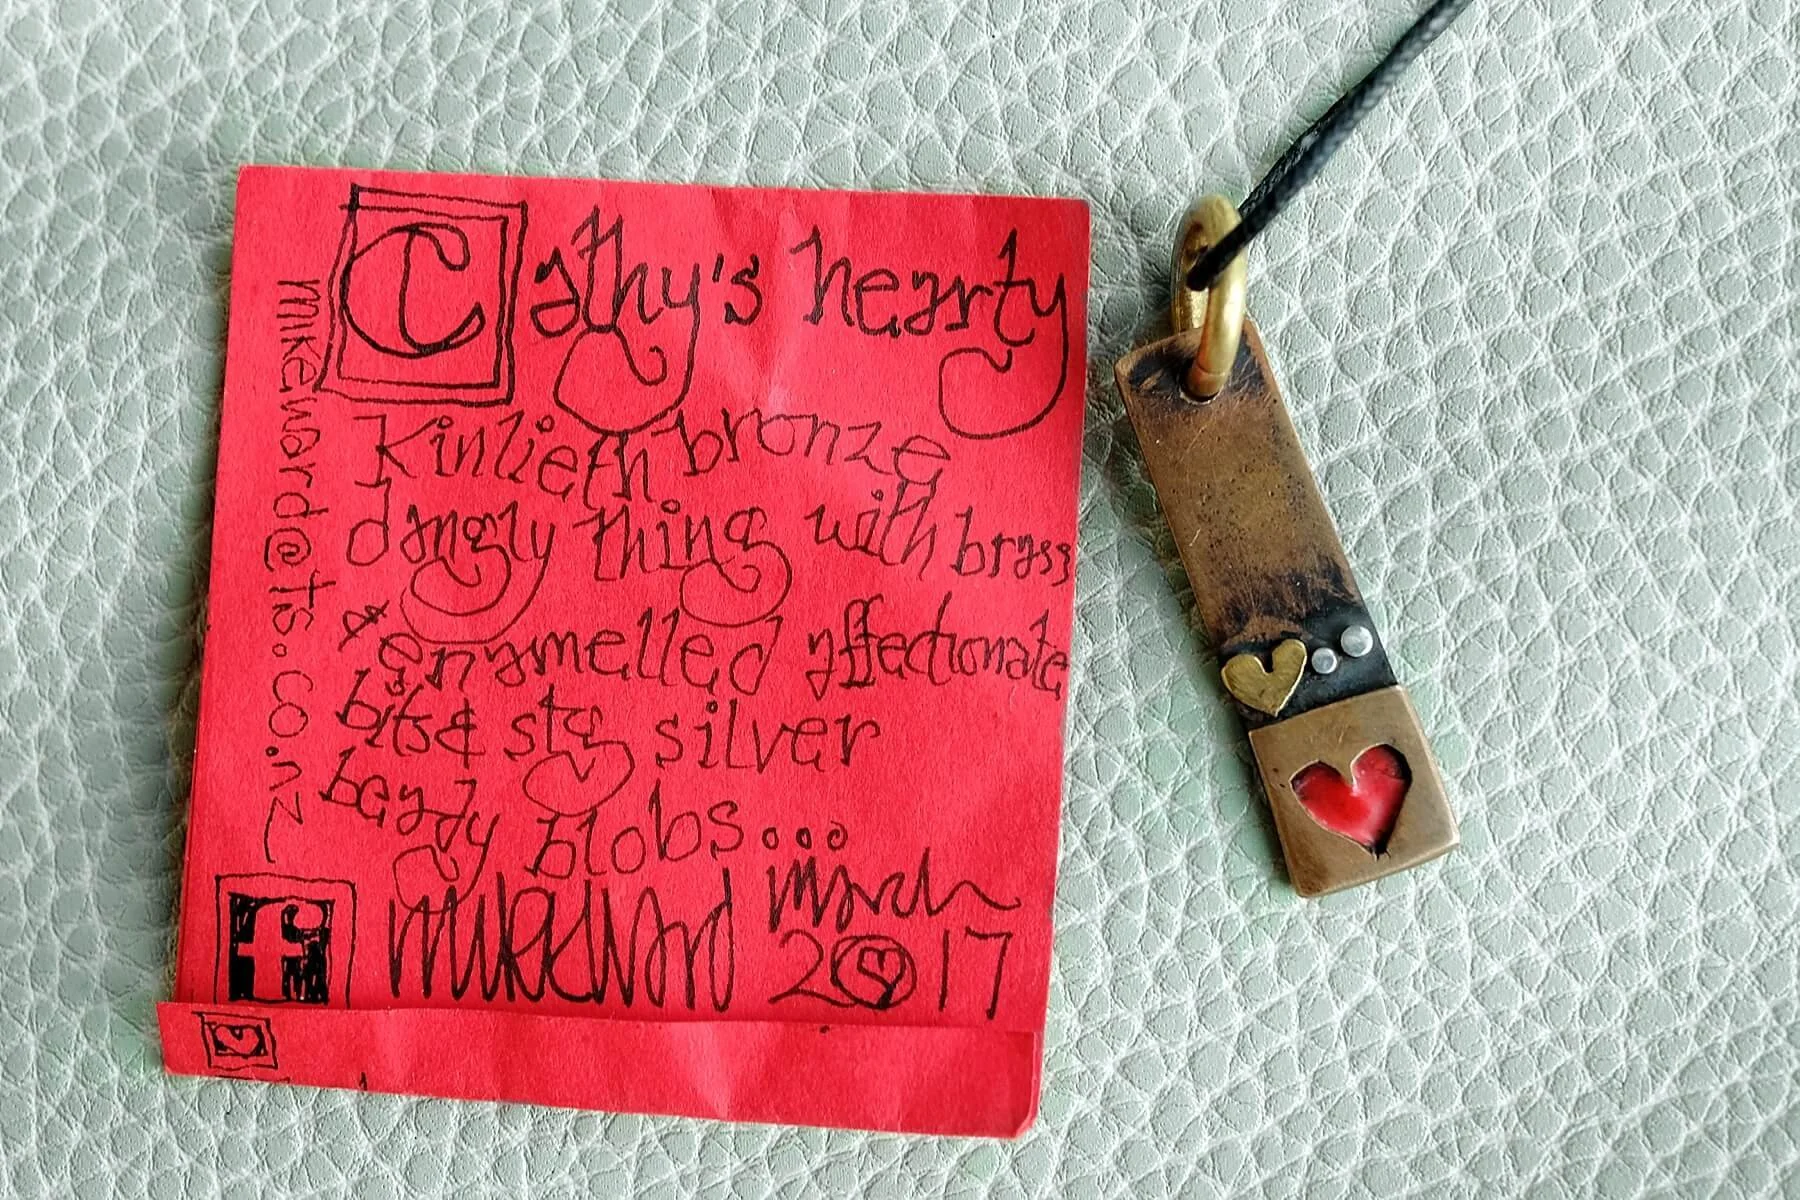 Cathy's hearty
Kinlieth bronze
dangly thing with brass
& enamelled affectionate
bits & stg silver
beady blobs...
mikeward march
2017
mikeward@ts.co.nz
f